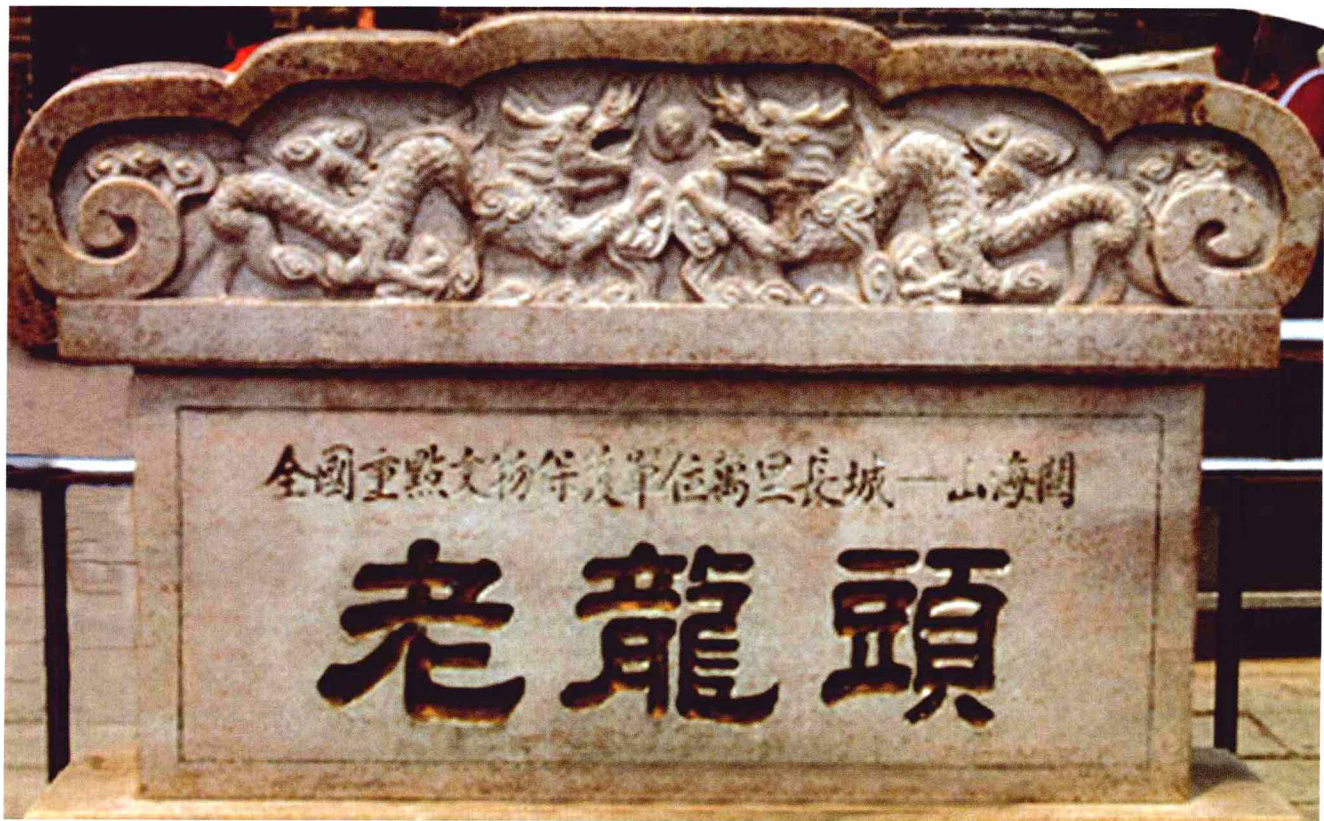 全國重點文物保護單位萬里長城—山海関
老龍頭